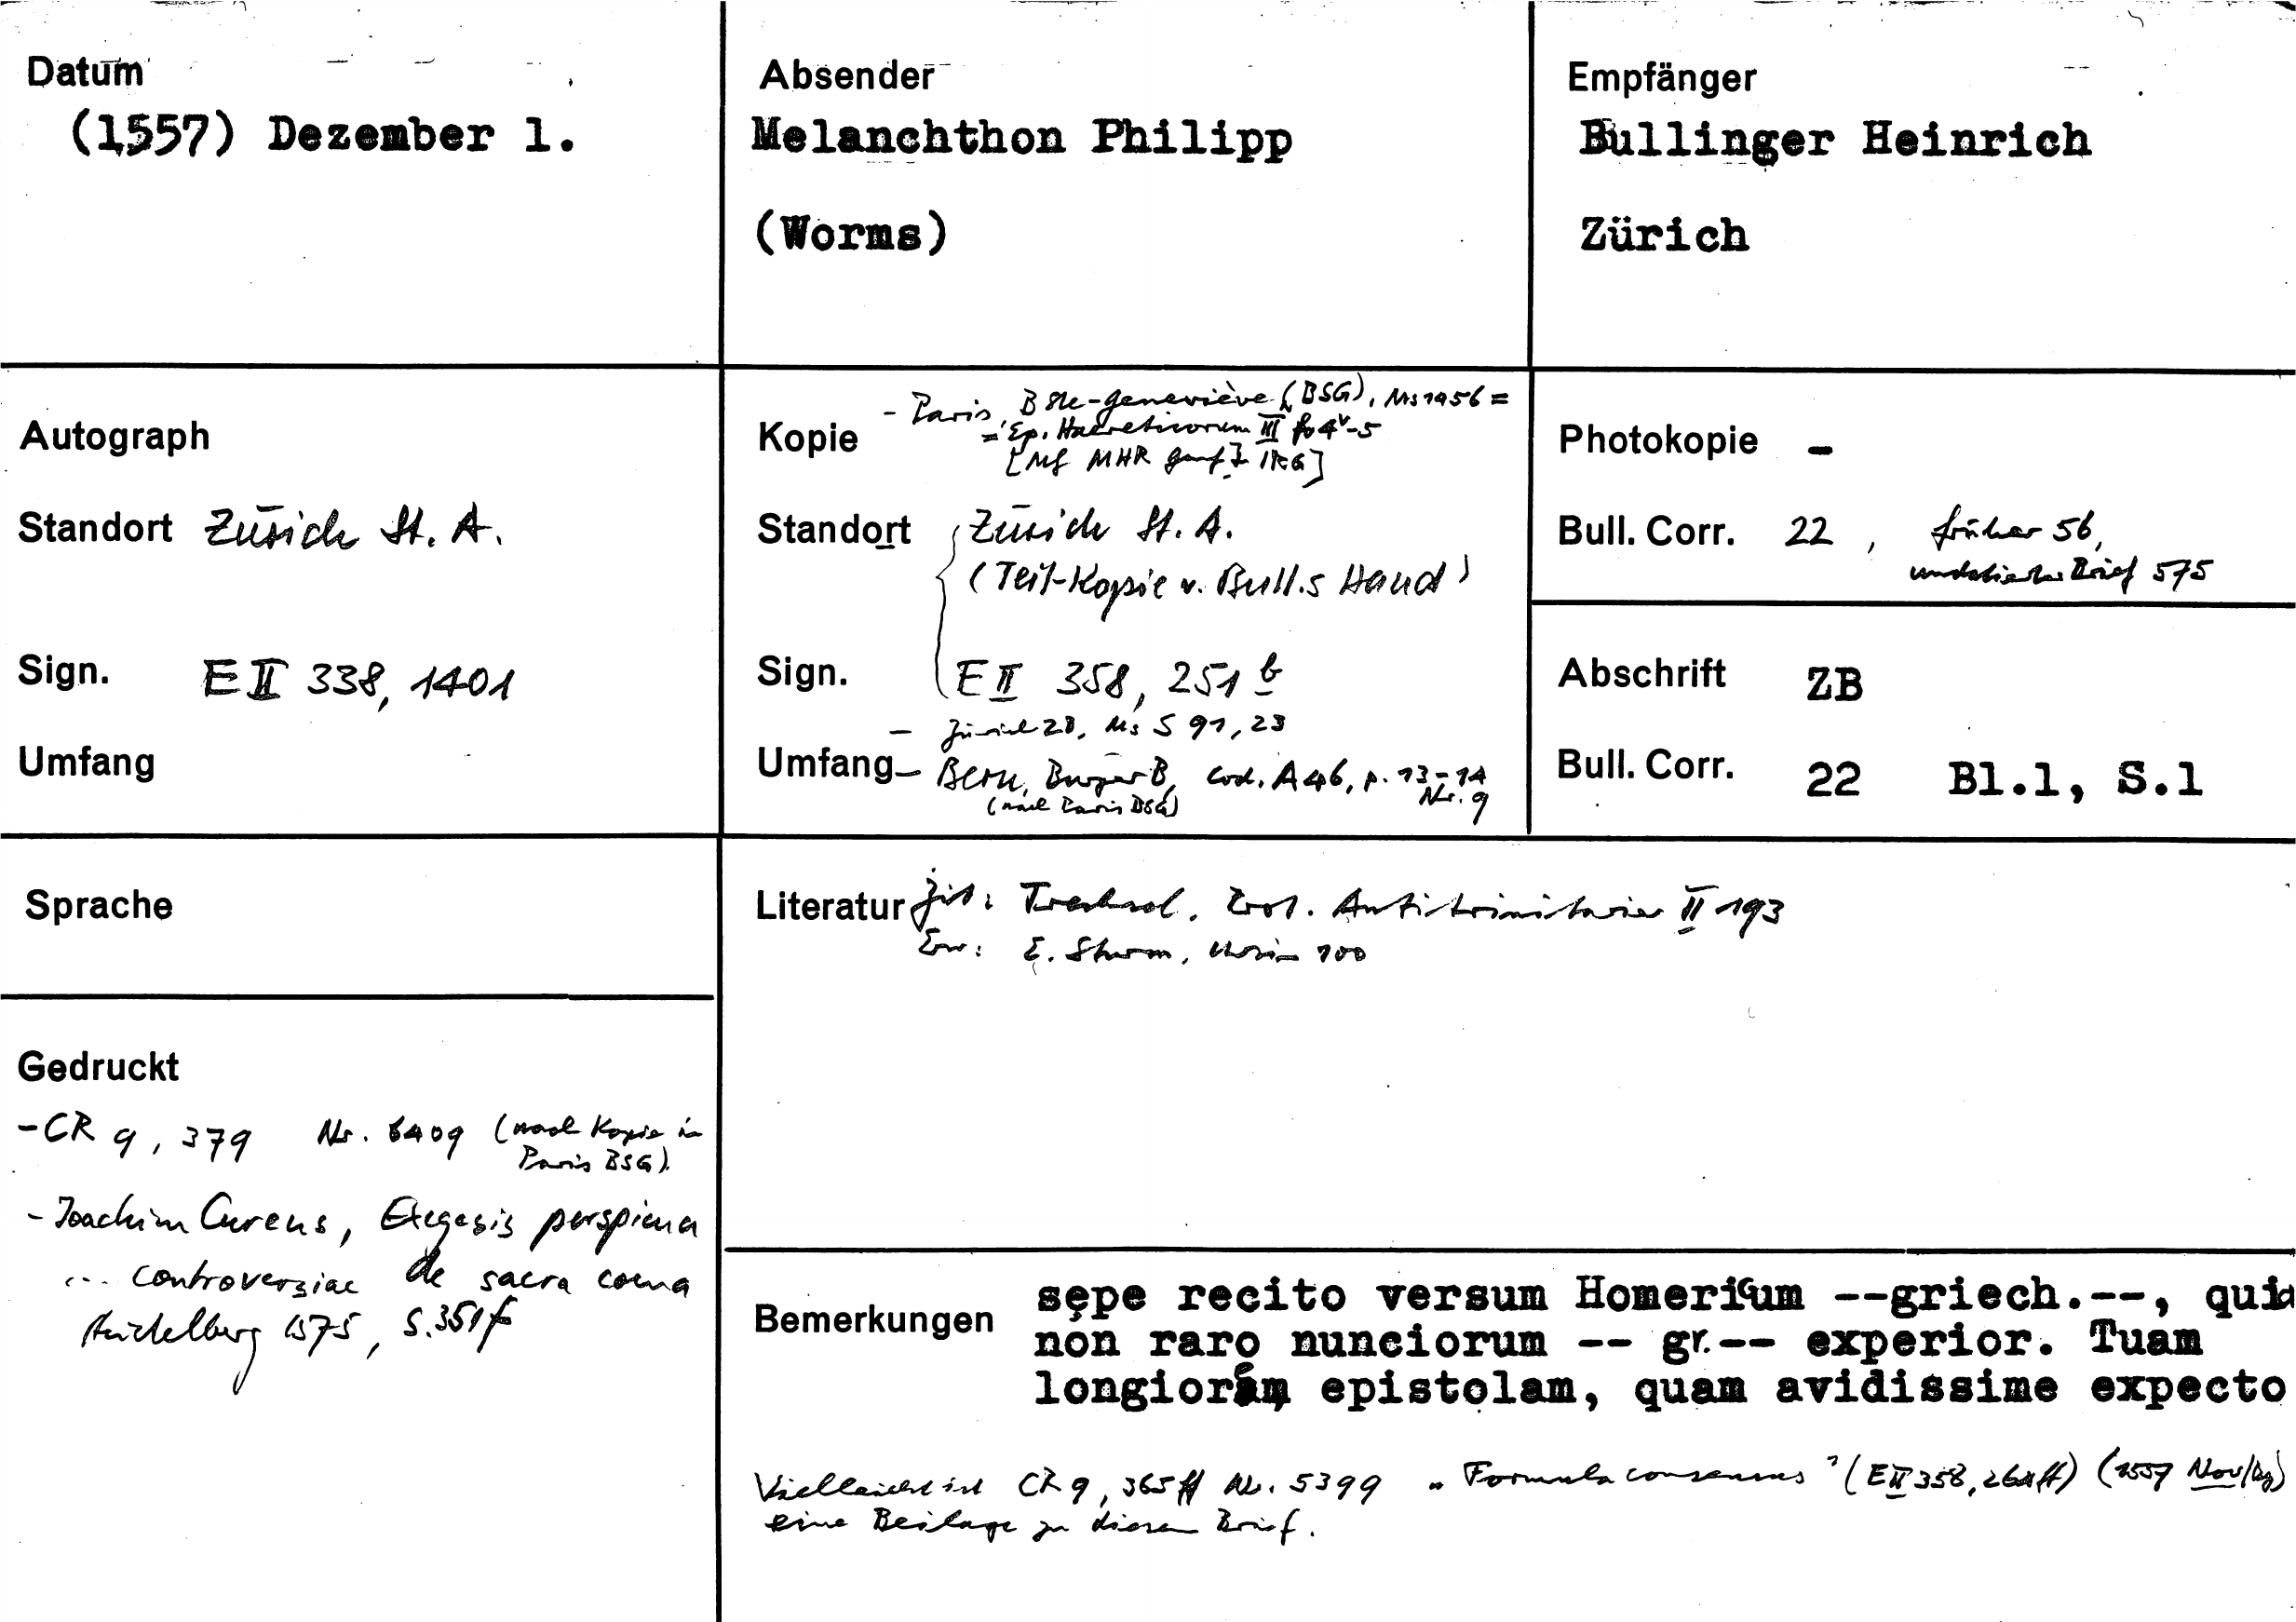 Datum
(1557) Dezember 1.
Absender
Melanchthon Philipp
(Worms)
Empfänger
Bullinger Heinrich
Zürich
Autograph
Standort Zürich St. A.
Sign. E II 338, 1401
Umfang
Kopie - Paris, B Ste-Geneviève (BSG), Ms 1456 =
= Ep. Haereticorum III fo 4v-5
[Mf MHR Genf IRG]
Standort Zürich St. A.
(Teil-Kopie v. Bull.s Hand)
Sign. E II 358, 251 b
- Zürich ZB, Ms S 91, 23
Umfang - Bern, Burger B, Cod. A 46, p. 13-14
Nr. 9
(nach Paris BSG)
Photokopie -
Bull. Corr. 22, früher 56,
undatierter Brief 575
Abschrift ZB
Bull. Corr. 22 Bl.1, S.1
Sprache
Literatur Zit: Trechsel, Prot. Antitrinitarier II 193
Erw: E. Sturm, Ursin 100
Gedruckt
- CR 9, 379 Nr. 6409 (nach Kopie in
Paris BSG).
- Joachim Cureus, Exegesis perspicua
... controversiae de sacra coena
Heidelberg 1575, S. 351f
Bemerkungen sępe recito versum Homericum --griech.--, quia
non raro nunciorum -- gr.-- experior. Tuam
longiorem epistolam, quam avidissime expecto
Vielleicht ist CR 9, 365 ff Nr. 5399 "Formula consensus" (E II 358, ff) (1557 Nov/)
eine Beilage zu diesem Brief.